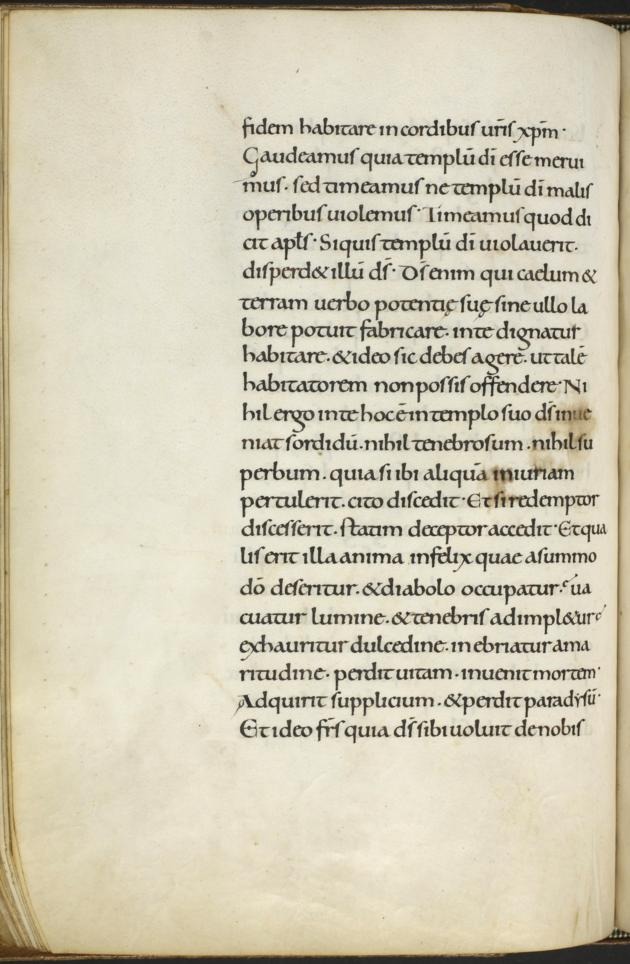 fidem habitare in cordibus ur̄is xp̄m·
Gaudeamus quia templū dī esse merui
mus· sed timeamus ne templū dī malis
operibus uiolemus· Timeamus quod di
cit apl̄s· Siquis templū dī uiolauerit·
disperd& illū ds̄· Ds̄ enim qui caelum &
terram uerbo potentię suę sine ullo la
bore potuit fabricare· in te dignatur
habitare· & ideo sic debes agere· ut talē
habitatorem non possis offendere· Ni
hil ergo in te hoc ē in templo suo ds̄ inue
niat sordidū· nihil tenebrosum· nihil su
perbum· quia si ibi aliquā iniuriam
pertulerit· cito discedit· Et si redemptor
discesserit· statim deceptor accedit· Et qua
lis erit illa anima infelix quae a summo
dō deseritur· & diabolo occupatur· ua
cuatur lumine· & tenebris adimpl&ur
exhauritur dulcedine· inebriatur ama
ritudine· perdit uitam· inuenit mortem·
Adquirit supplicium· & perdit paradysū·
Et ideo fr̄s quia ds̄ sibi uoluit de nobis